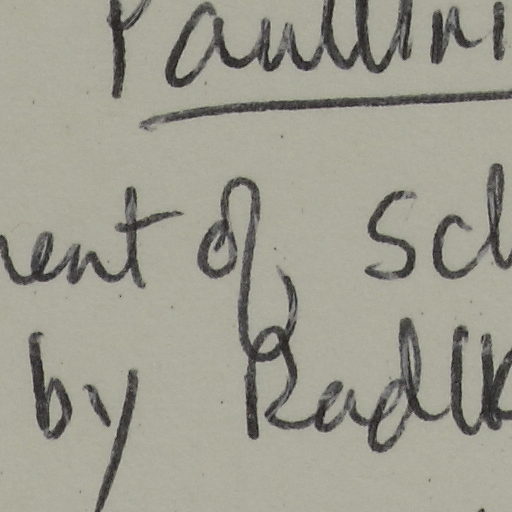 Paullini
ment of Sch
by Radlk